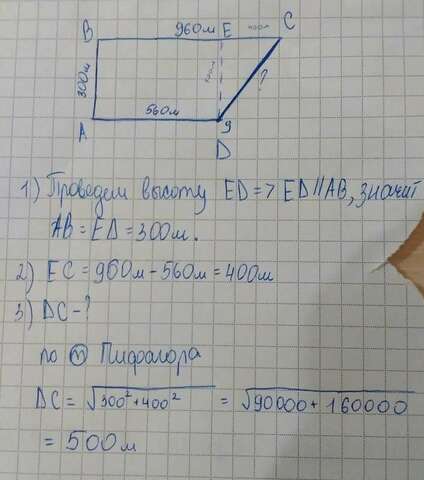 B 960м E 400м C
300м ?
560м
A g
D
1) Проведем высоту ED=> ED||AB, значит
AB = ED = 300м.
2) EC = 960м - 560м = 400м
3) DC - ?
по т Пифагора
DC = √300²+400² = √90000 + 160000
= 500м